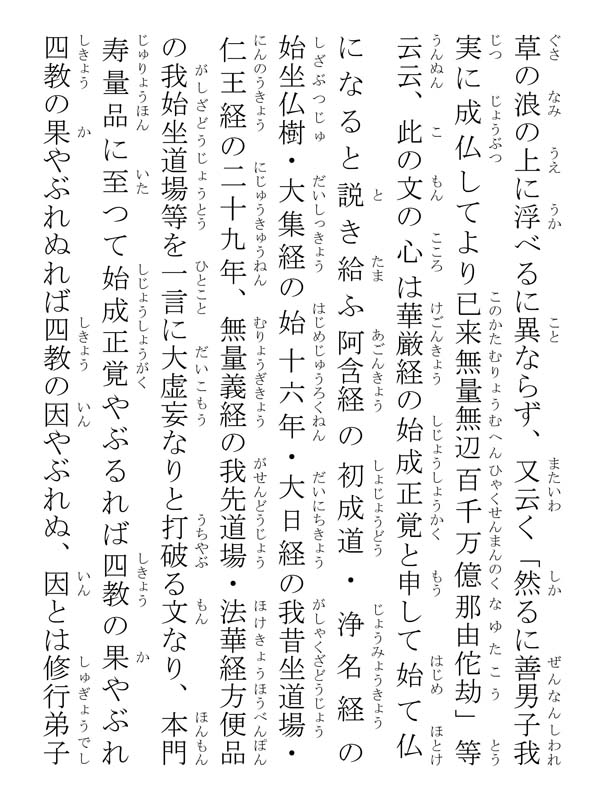 草の浪の上に浮べるに異ならず、又云く「然るに善男子我
実に成仏してより已来無量無辺百千万億那由佗劫」等
云云、此の文の心は華厳経の始成正覚と申して始て仏
になると説き給ふ阿含経の初成道・浄名経の
始坐仏樹・大集経の始十六年・大日経の我昔坐道場・
仁王経の二十九年、無量義経の我先道場・法華経方便品
の我始坐道場等を一言に大虚妄なりと打破る文なり、本門
寿量品に至つて始成正覚やぶるれば四教の果やぶれ
四教の果やぶれぬれば四教の因やぶれぬ、因とは修行弟子